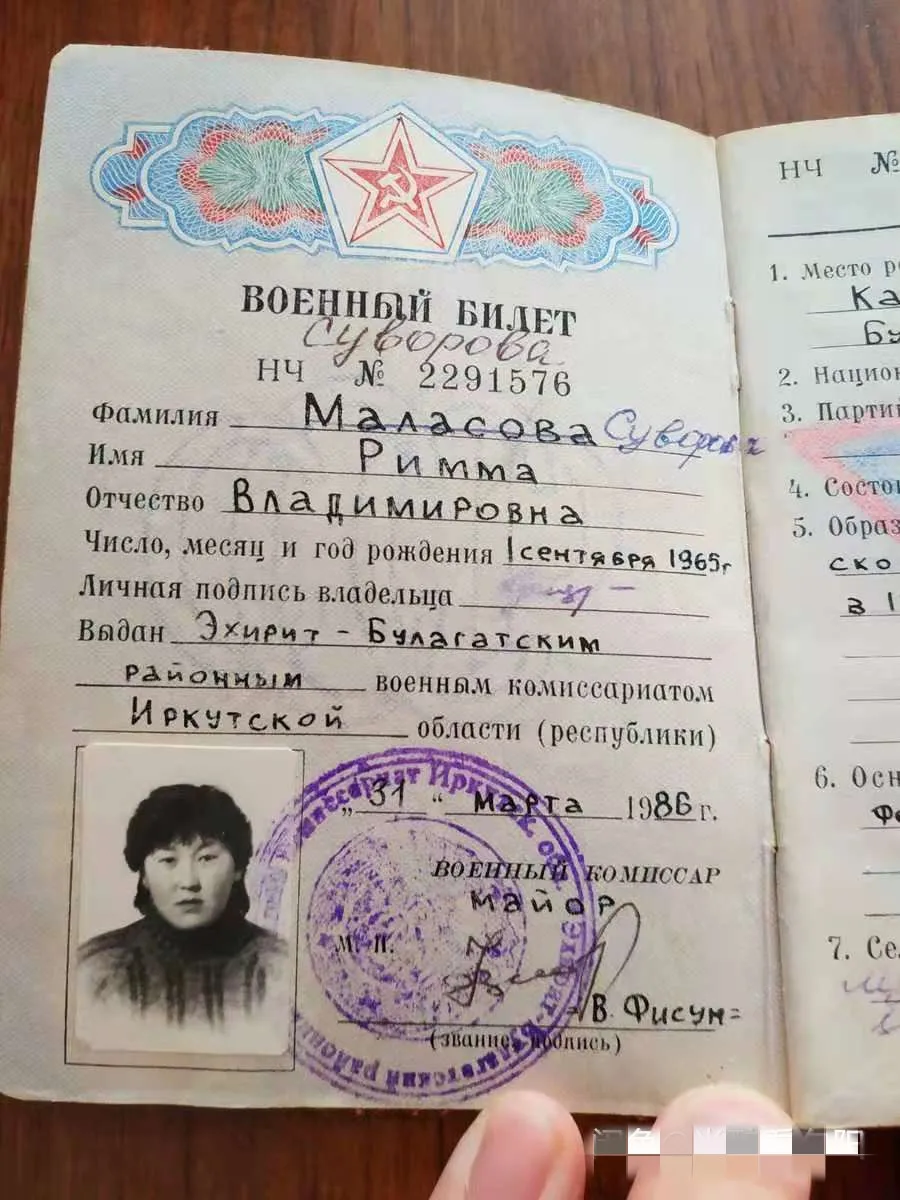 ВОЕННЫЙ БИЛЕТ
Суворова
НЧ № 2291576
Фамилия Маласова Суворова
Имя Римма
Отчество Владимировна
Число, месяц и год рождения 1 сентября 1965г
Личная подпись владельца
Выдан Эхирит-Булагатским
районным военным комиссариатом
Иркутской области (республики)
„31“ марта 1986 г.
ВОЕННЫЙ КОМИССАР
майор
М. П.
=В. Фисун=
(звание, подпись)
НЧ №
1. Место р
Ка
Бу
2. Национ
3. Парти
4. Состо
5. Образ
ско
в 1
6. Осн
7. Се